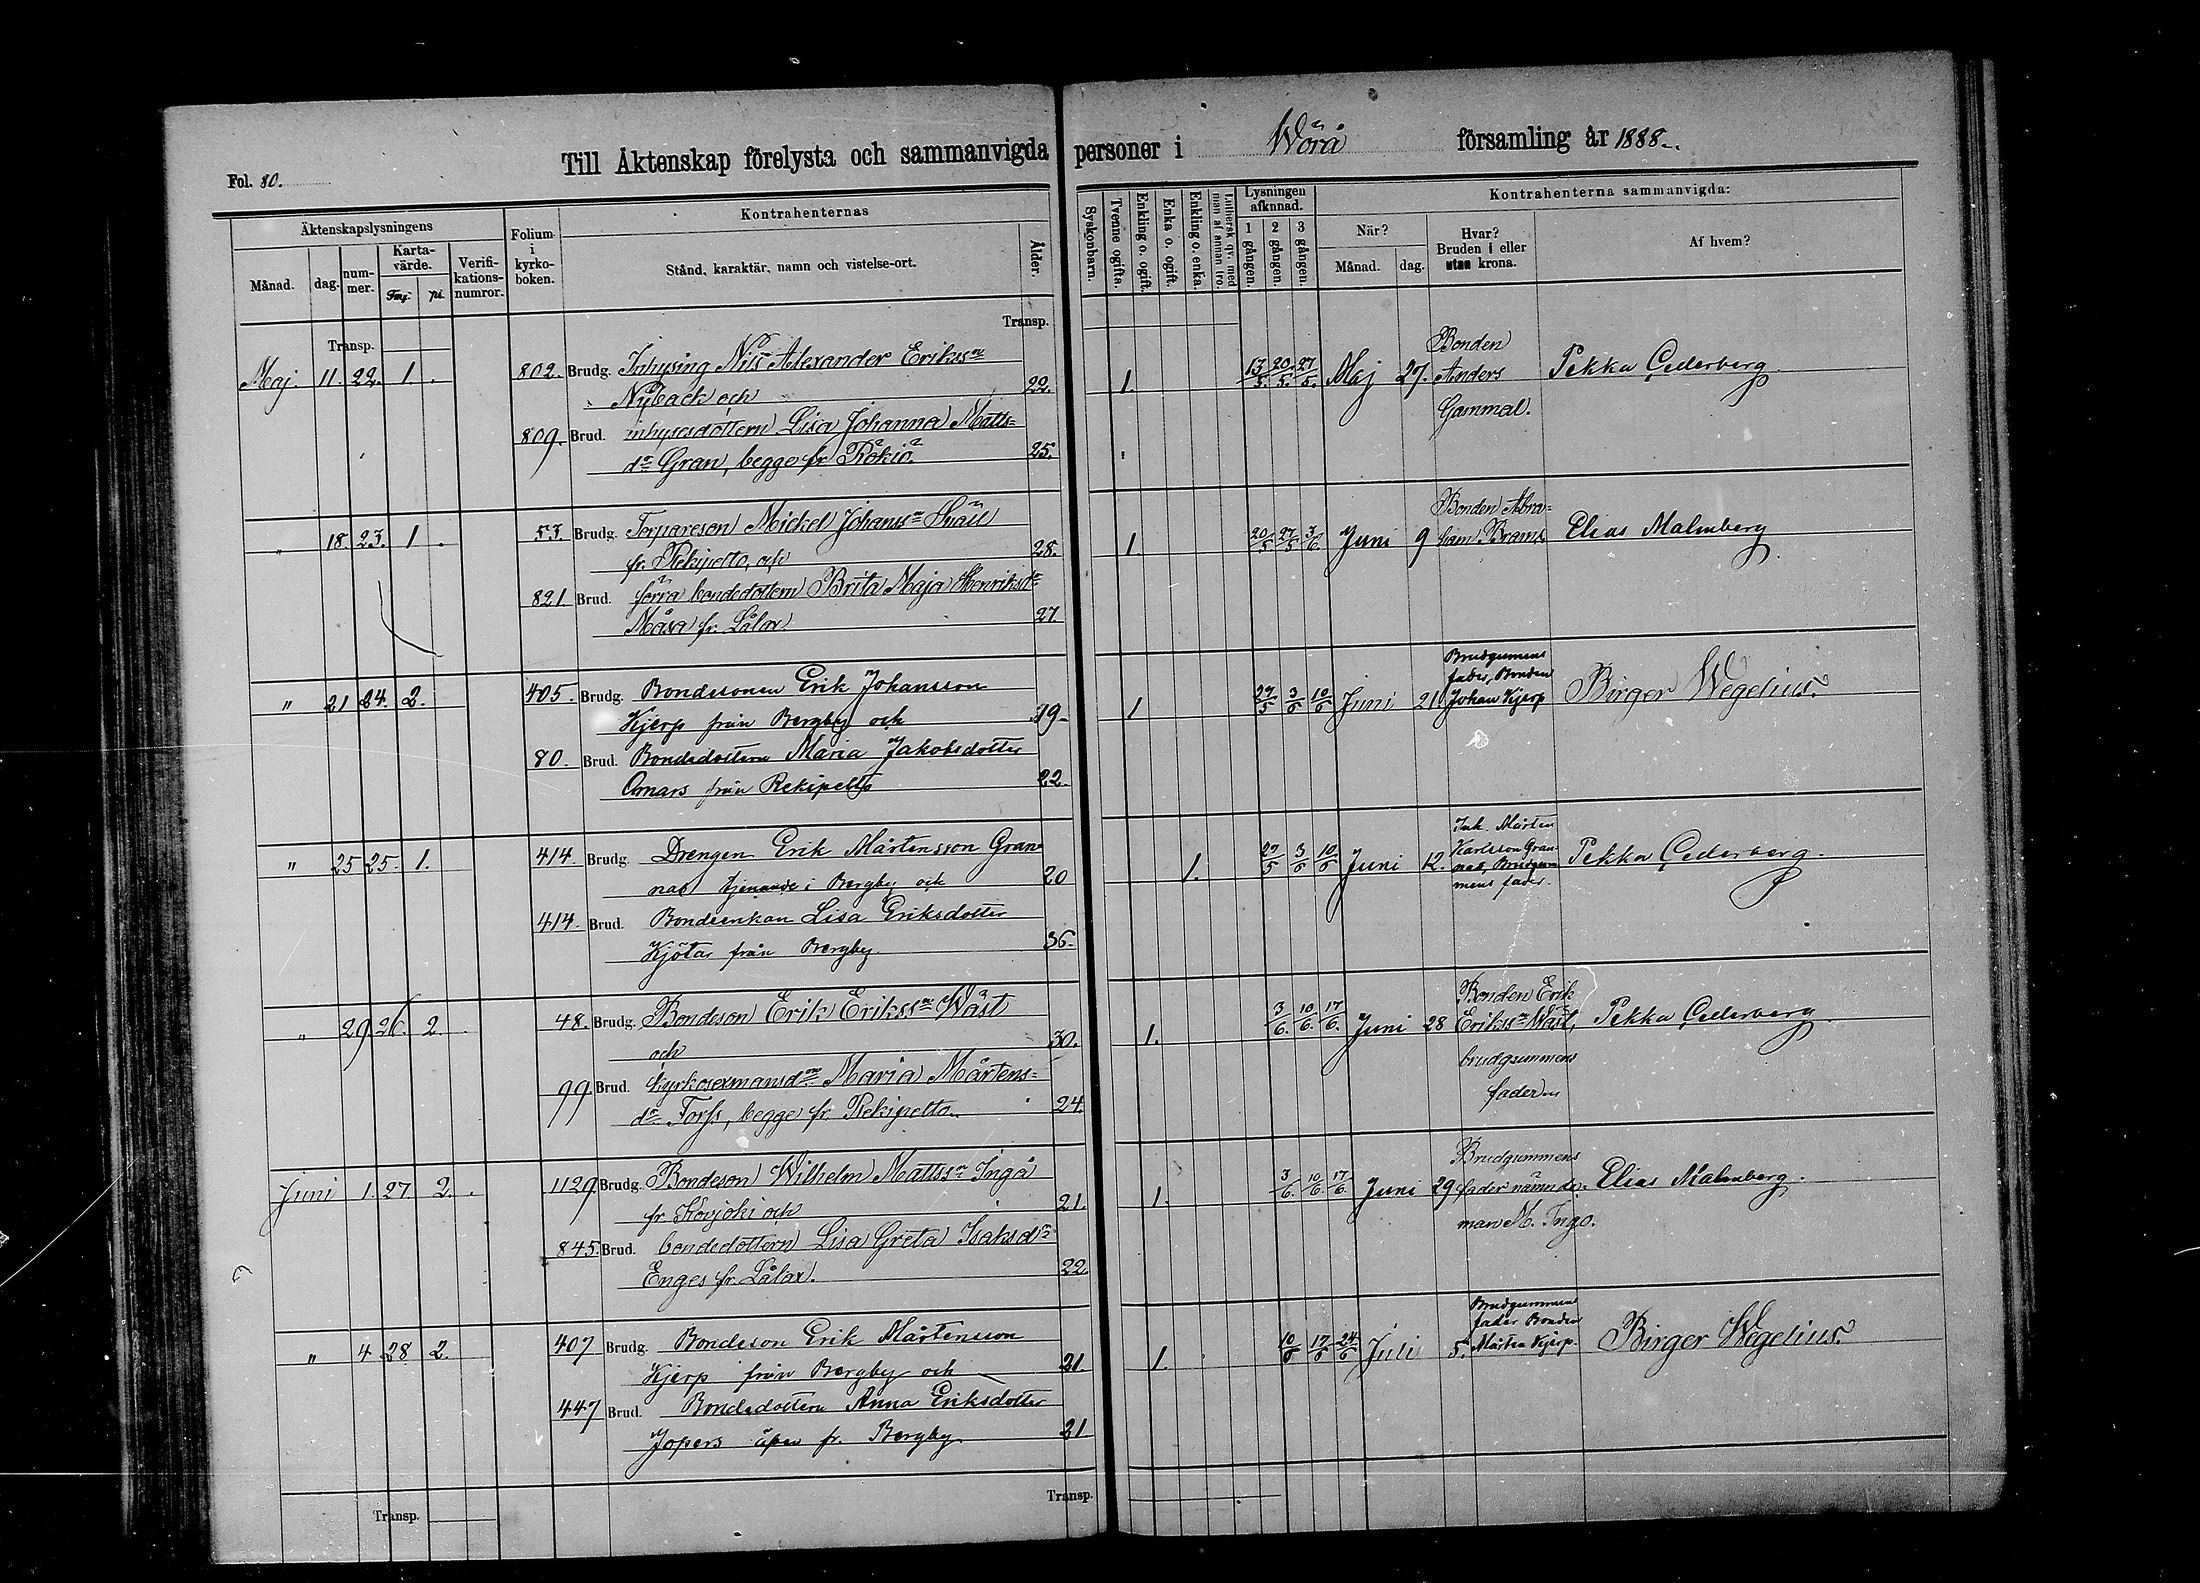 Fol. 80.
Till Äktenskap förelysta och sammanvigda personer i Wörå församling år 1888.
Äktenskapslysningens
Månad.
dag.
num-
mer.
Karta-
värde.
Fmg.
pi.
Verifi-
kations-
numror.
Folium
i
kyrko-
boken.
Kontrahenternas
Stånd, karaktär, namn och vistelse-ort.
Ålder.
Syskonbarn.
Tvenne ogifta.
Enkling o. ogift.
Enka o. ogift.
Enkling o. enka.
Luthersk qv. med
man af annan tro.
Lysningen
afkunnad.
1 gången.
2 gången.
3 gången.
Kontrahenterna sammanvigda:
När?
Månad.
dag.
Hvar?
Bruden i eller
utan krona.
Af hvem?
Transp.
Transp.
Maj. 11. 22. 1. 802. Brudg. Inhysing Nils Alexander Erikssn
Nyback och 22.
809. Brud. inhysesdottern Lisa Johanna Matts=
dr Gran, begge fr. Rökiö. 25.
1. 13/5. 20/5. 27/5. Maj 27. Bonden
Anders
Gammal.
Pekka Cederberg
" 18. 23. 1. 53. Brudg. Torpareson Mickel Johanssn Snäll
fr. Rekipelto, och 28.
821. Brud. förra bondedottern Brita Maja Henriksdr
Måsa fr. Lålax. 27.
1. 20/5 27/5 3/6. Juni 9 Bonden Abra=
ham Brams
Elias Malmberg
" 21 24. 2. 405. Brudg. Bondesonen Erik Johansson
Kjerp från Bergby och 19-
80. Brud. Bondedottern Maria Jakobsdotter
Omars från Rekipelto 22.
1 27/5 3/6 10/6 Juni 21 Brudgumens
fader, Bonden
Johan Kjerp
Birger Wegelius.
" 25 25. 1. 414. Brudg. Drengen Erik Mårtensson Gran-
nas tjenande i Bergby och 20
414. Brud. Bondeenkan Lisa Eriksdotter
Kjötar från Bergby 36.
1. 27/5 3/6 10/6 Juni 12. Inh. Mårten
Karlsson Gran-
nas, Brudgum-
mens fader.
Pekka Cederberg.
" 29. 26. 2. 48. Brudg. Bondeson Erik Erikssn Wäst
och 30.
99. Brud. kyrkosexmansdrn Maria Mårtens=
dr Forss, begge fr. Rekipelto. 24.
1. 3/6. 10/6. 17/6. Juni 28 Bonden Erik
Erikssn Wäst,
brudgummens
fader
Pekka Cederberg.
Juni 1. 27 2. 1129. Brudg. Bondeson Wilhelm Mattssn Ingo
fr. Kovjoki och 21.
845. Brud. bondedottern Lisa Greta Isaksdr
Enges fr. Lålax. 22.
1. 3/6. 10/6. 17/6. Juni 29 Brudgummens
fader nämnde=
man M. Ingo.
Elias Malmberg.
" 4 28 2. 407 Brudg. Bondeson Erik Mårtensson
Kjerp från Bergby och 21.
447 Brud. Bondedottern Anna Eriksdotter
Jopers fr. Bergby 21
1. 10/6 17/6 24/6 Juli 5. Brudgummens
fader Bonden
Mårten Kjerp.
Birger Wegelius.
Transp.
Transp.